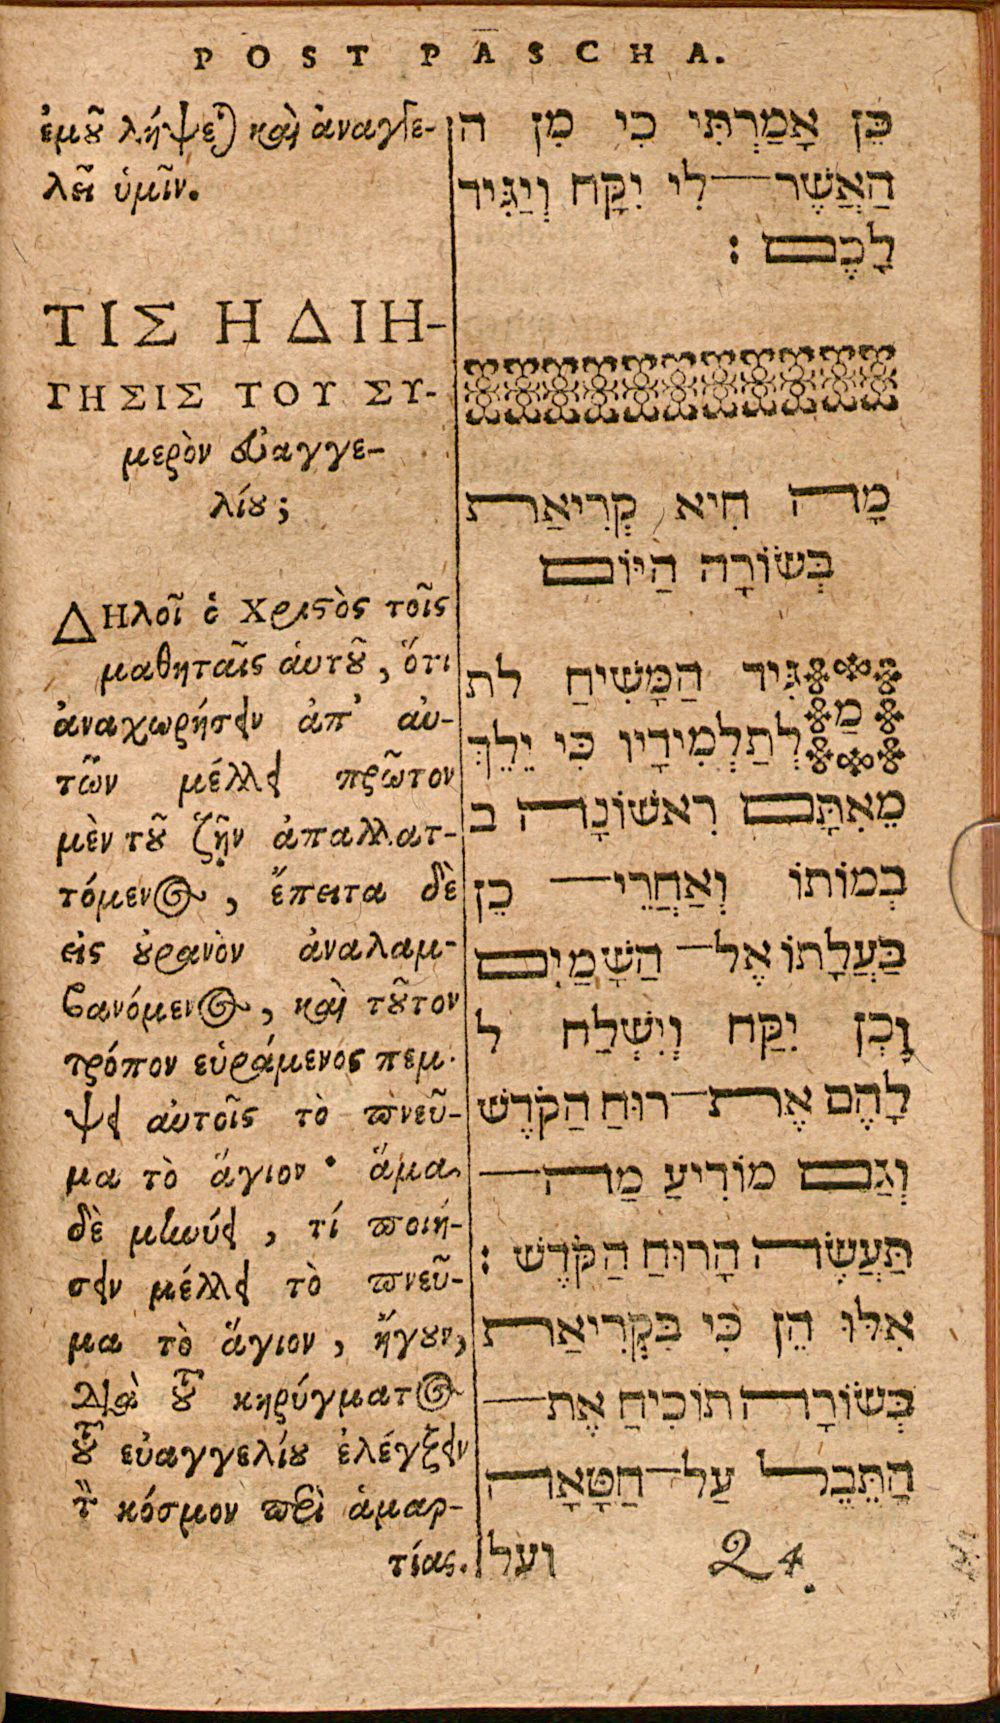 POST PASCHA.
ἐμοῦ λήψεται καὶ ἀναγγε-
λεῖ ὑμῖν.
ΤΙΣ Η ΔΙΗ-
ΓΗΣΙΣ ΤΟΥ ΣΥ-
μερὸν εὐαγγε-
λίου;
ΔΗλοῖ ὁ Χριστὸς τοῖς
μαθηταῖς ἀυτοῦ, ὅτι
ἀναχωρήσειν ἀπ' αὐ-
τῶν μέλλει πρῶτον
μὲν τοῦ ζῇν ἀπαλλατ-
τόμενος, ἔπειτα δὲ
εἰς οὐρανὸν ἀναλαμ-
βανόμενος, καὶ τοῦτον
τρόπον εὑράμενος πεμ-
ψει αὐτοῖς τὸ πνεῦ-
μα τὸ ἅγιον· ἅμα
δὲ μηνύει, τί ποιή-
σειν μέλλει τὸ πνεῦ-
μα τὸ ἅγιον, ἤγουν,
διὰ τοῦ κηρύγματος
τοῦ εὐαγγελίου ἐλέγξειν
τὸν κόσμον περὶ ἁμαρ-
τίας.
כֵּן אָמַרְתִּי כִי מִן ה
הַאֲשֶׁר לִי יִקָּח וְיַגִּיד
לָכֶם :
מָה הִיא קְרִיאַת
בְּשׂוֹרָה הַיּוֹם
מַגִּיד הַמָּשִׁיחַ לת
לְתַלְמִידָיו כִּי יֵלֵךְ
מֵאִתָּם רִאשׁוֹנָה ב
בְמוֹתוֹ וְאַחֲרֵי כֵן
בַּעֲלָתוֹ אֶל הַשָּׁמַיִם
וָכְן יִקַּח וְיִשְׁלַח ל
לָהֶם אֶת רוּחַ הַקֹּדֶשׁ
וְגַם מוֹדִיעַ מָה
תַּעֲשֶׂה הָרוּחַ הַקֹּדֶשׁ :
אִלּוּ הֵן כִּי בִּקְרִיאַת
בְּשׂוֹרָה תוֹכִיחַ אֶת
הַתֵּבֵל עַל חַטָּאָה
ועל
24.